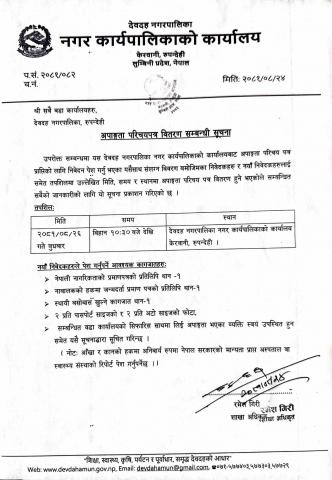 देवदह नगरपालिका
नगर कार्यपालिकाको कार्यालय
केरवानी, रुपन्देही
लुम्बिनी प्रदेश, नेपाल
प.सं. २०८१/०८२
च.नं.
मिति: २०८१/०८/२४
श्री सबै वडा कार्यालयहरु,
देवदह नगरपालिका, रुपन्देही
अपाङ्गता परिचयपत्र वितरण सम्बन्धी सूचना
उपरोक्त सम्बन्धमा यस देवदह नगरपालिका नगर कार्यपालिकाको कार्यालयबाट अपाङ्गता परिचय पत्र
प्राप्तिको लागि निवेदन पेश गर्नु भएका यसैसाथ संलग्न विवरण बमोजिमका निवेदकहरु र नयाँ निवेदकहरुलाई
समेत तपशिलमा उल्लेखित मिति, समय र स्थानमा अपाङ्गता परिचय पत्र वितरण हुने भएकोले सम्बन्धित
सबैको जानकारीको लागि यो सूचना प्रकाशन गरिएको छ ।
तपशिल:
मिति समय स्थान
२०८१/०८/२६ बिहान १०:३० बजे देखि देवदह नगरपालिका नगर कार्यपालिकाको कार्यालय
गते बुधबार केरवानी, रुपन्देही ।
नयाँ निवेदकहरुले पेश गर्नुपर्ने आवश्यक कागजातहरु:
➢ नेपाली नागरिकताको प्रमाणपत्रको प्रतिलिपि थान -१
➢ नाबालकको हकमा जन्मदर्ता प्रमाण पत्रको प्रतिलिपि थान -१
➢ स्थायी बसोबास खुल्ने कागजात थान-१
➢ २ प्रति पासपोर्ट साइजको र २ प्रति अटो साइजको फोटा,
➢ सम्बन्धित वडा कार्यालयको सिफारिस साथमा लिई अपाङ्गता भएका व्यक्ति स्वयं उपस्थित हुन
समेत यसै सूचनाद्वारा सूचित गरिन्छ ।
( नोट: आँखा र कानको हकमा अनिवार्य रुपमा नेपाल सरकारको मान्यता प्राप्त अस्पताल वा
स्वास्थ्य संस्थाको रिपोर्ट पेश गर्नुपर्नेछ ।।)
२०८१/०८/२४
रमेश गिरी
शाखा अधिकृत
रमेश गिरी
शाखा अधिकृत
"शिक्षा, स्वास्थ्य, कृषि, पर्यटन र पूर्वाधार, समृद्ध देवदहको आधार"
Web: www.devdahamun.gov.np, Email: devdahamun@gmail.com, ☎०७१-५७७४०३,५७७३०३,५७७०२९